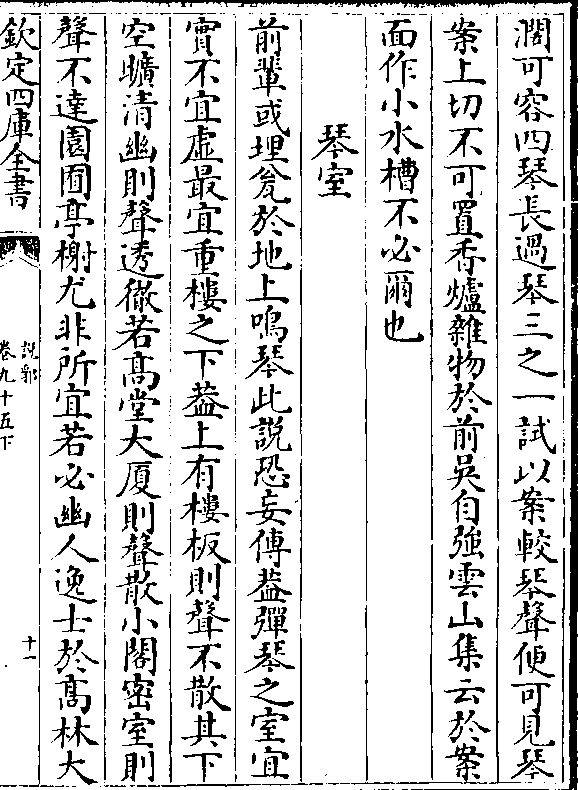 濶可容四琴長過琴三之一試以案較琴聲便可見琴
案上切不可置香爐雜物於前吳自強雲山集云於案
面作小水槽不必爾也
琴室
前輩或埋瓮於地上鳴琴此説恐妄傳葢彈琴之室宜
實不宜虛最宜重樓之下葢上有樓板則聲不散其下
空曠清幽則聲透徹若髙堂大厦則聲散小閣密室則
聲不達園囿亭榭尤非所宜若必幽人逸士於髙林大
欽定四庫全書
説郛
卷九十五下
十一